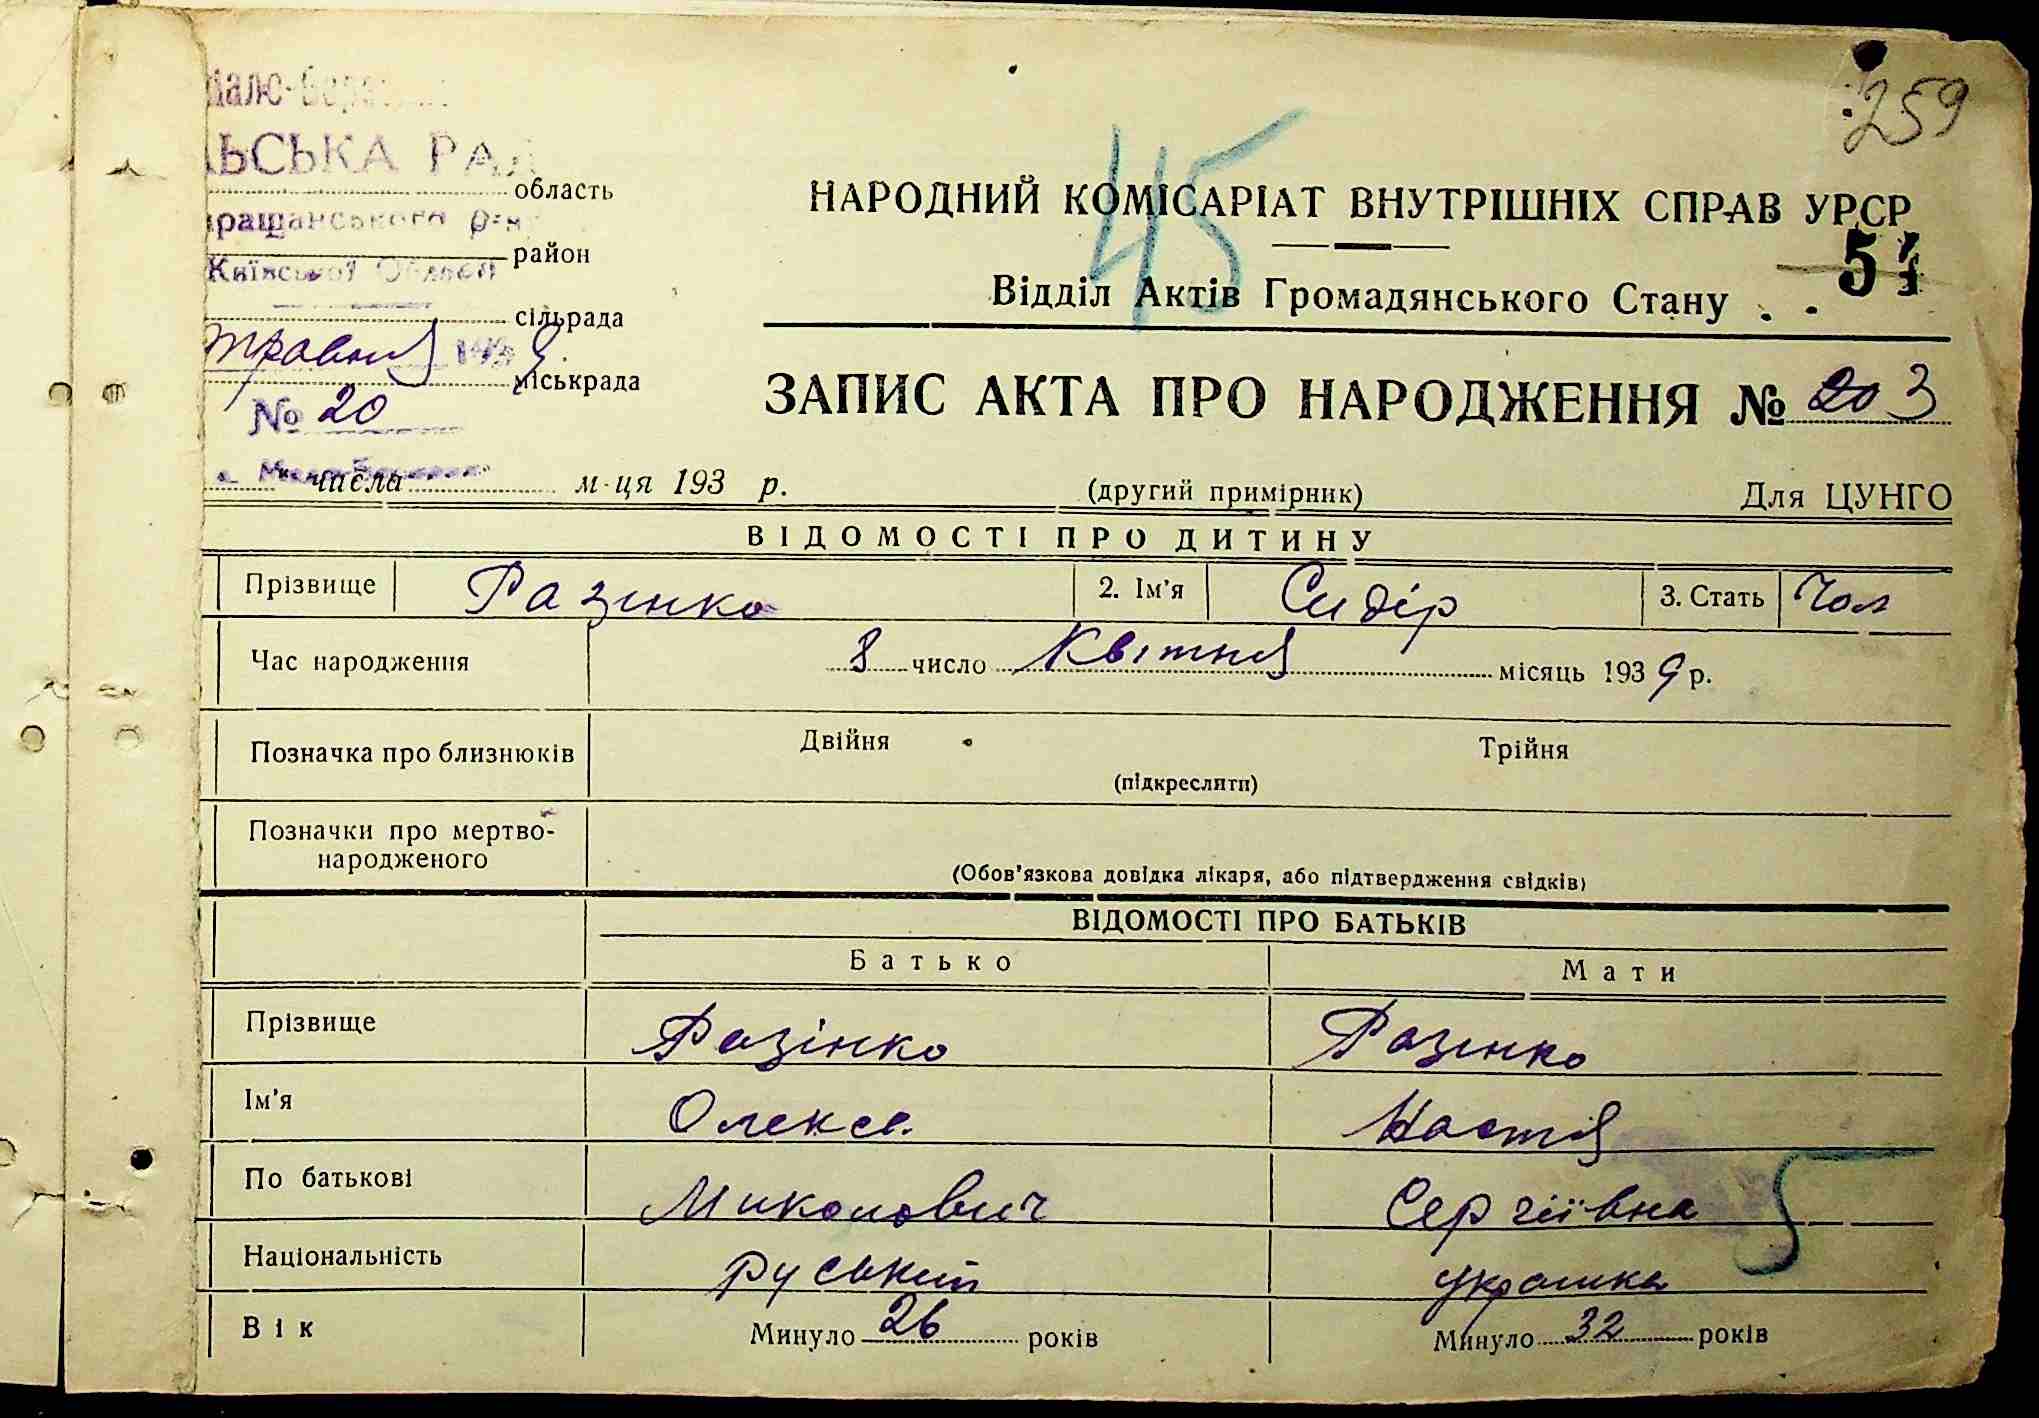 259
45
ЛЬСЬКА РАД
область
НАРОДНИЙ КОМІСАРІАТ ВНУТРІШНІХ СПРАВ УРСР
ращанського р-н
район
54
Київської Області
Відділ Актів Громадянського Стану
сільрада
травня 1939
міськрада
№ 20
ЗАПИС АКТА ПРО НАРОДЖЕННЯ № 20 3
числа м-ця 193 р.
(другий примірник)
Для ЦУНГО
ВІДОМОСТІ ПРО ДИТИНУ
Прізвище Разінко 2. Ім'я Сидір 3. Стать Чол
Час народження 8 число Квітня місяць 1939 р.
Позначка про близнюків Двійня Трійня
(підкреслити)
Позначки про мертво-
народженого
(Обов'язкова довідка лікаря, або підтвердження свідків)
ВІДОМОСТІ ПРО БАТЬКІВ
Батько Мати
Прізвище Разінко Разінко
Ім'я Олекса Настя
По батькові Миколович Сергіївна
5
Національність руський українка
Вік Минуло 26 років Минуло 32 років